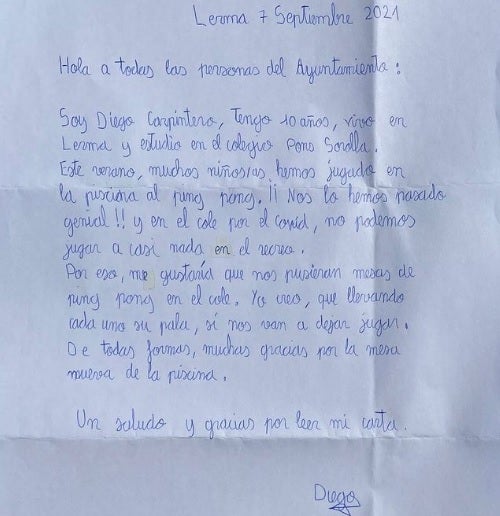 Lerma 7 Septiembre 2021
Hola a todas las personas del Ayuntamiento:
Soy Diego Carpintero, Tengo 10 años, vivo en
Lerma y estudio en el colegio Pons Sorolla.
Este verano, muchos niños/as, hemos jugado en
la piscina al ping pong. ¡¡ Nos lo hemos pasado
genial!! y en el cole por el covid, no podemos
jugar a casi nada en el recreo.
Por eso, me gustaría que nos pusieran mesas de
ping pong en el cole. Yo creo, que llevando
cada uno su pala, sí nos van a dejar jugar.
De todas formas, muchas gracias por la mesa
nueva de la piscina.
Un saludo y gracias por leer mi carta.
Diego